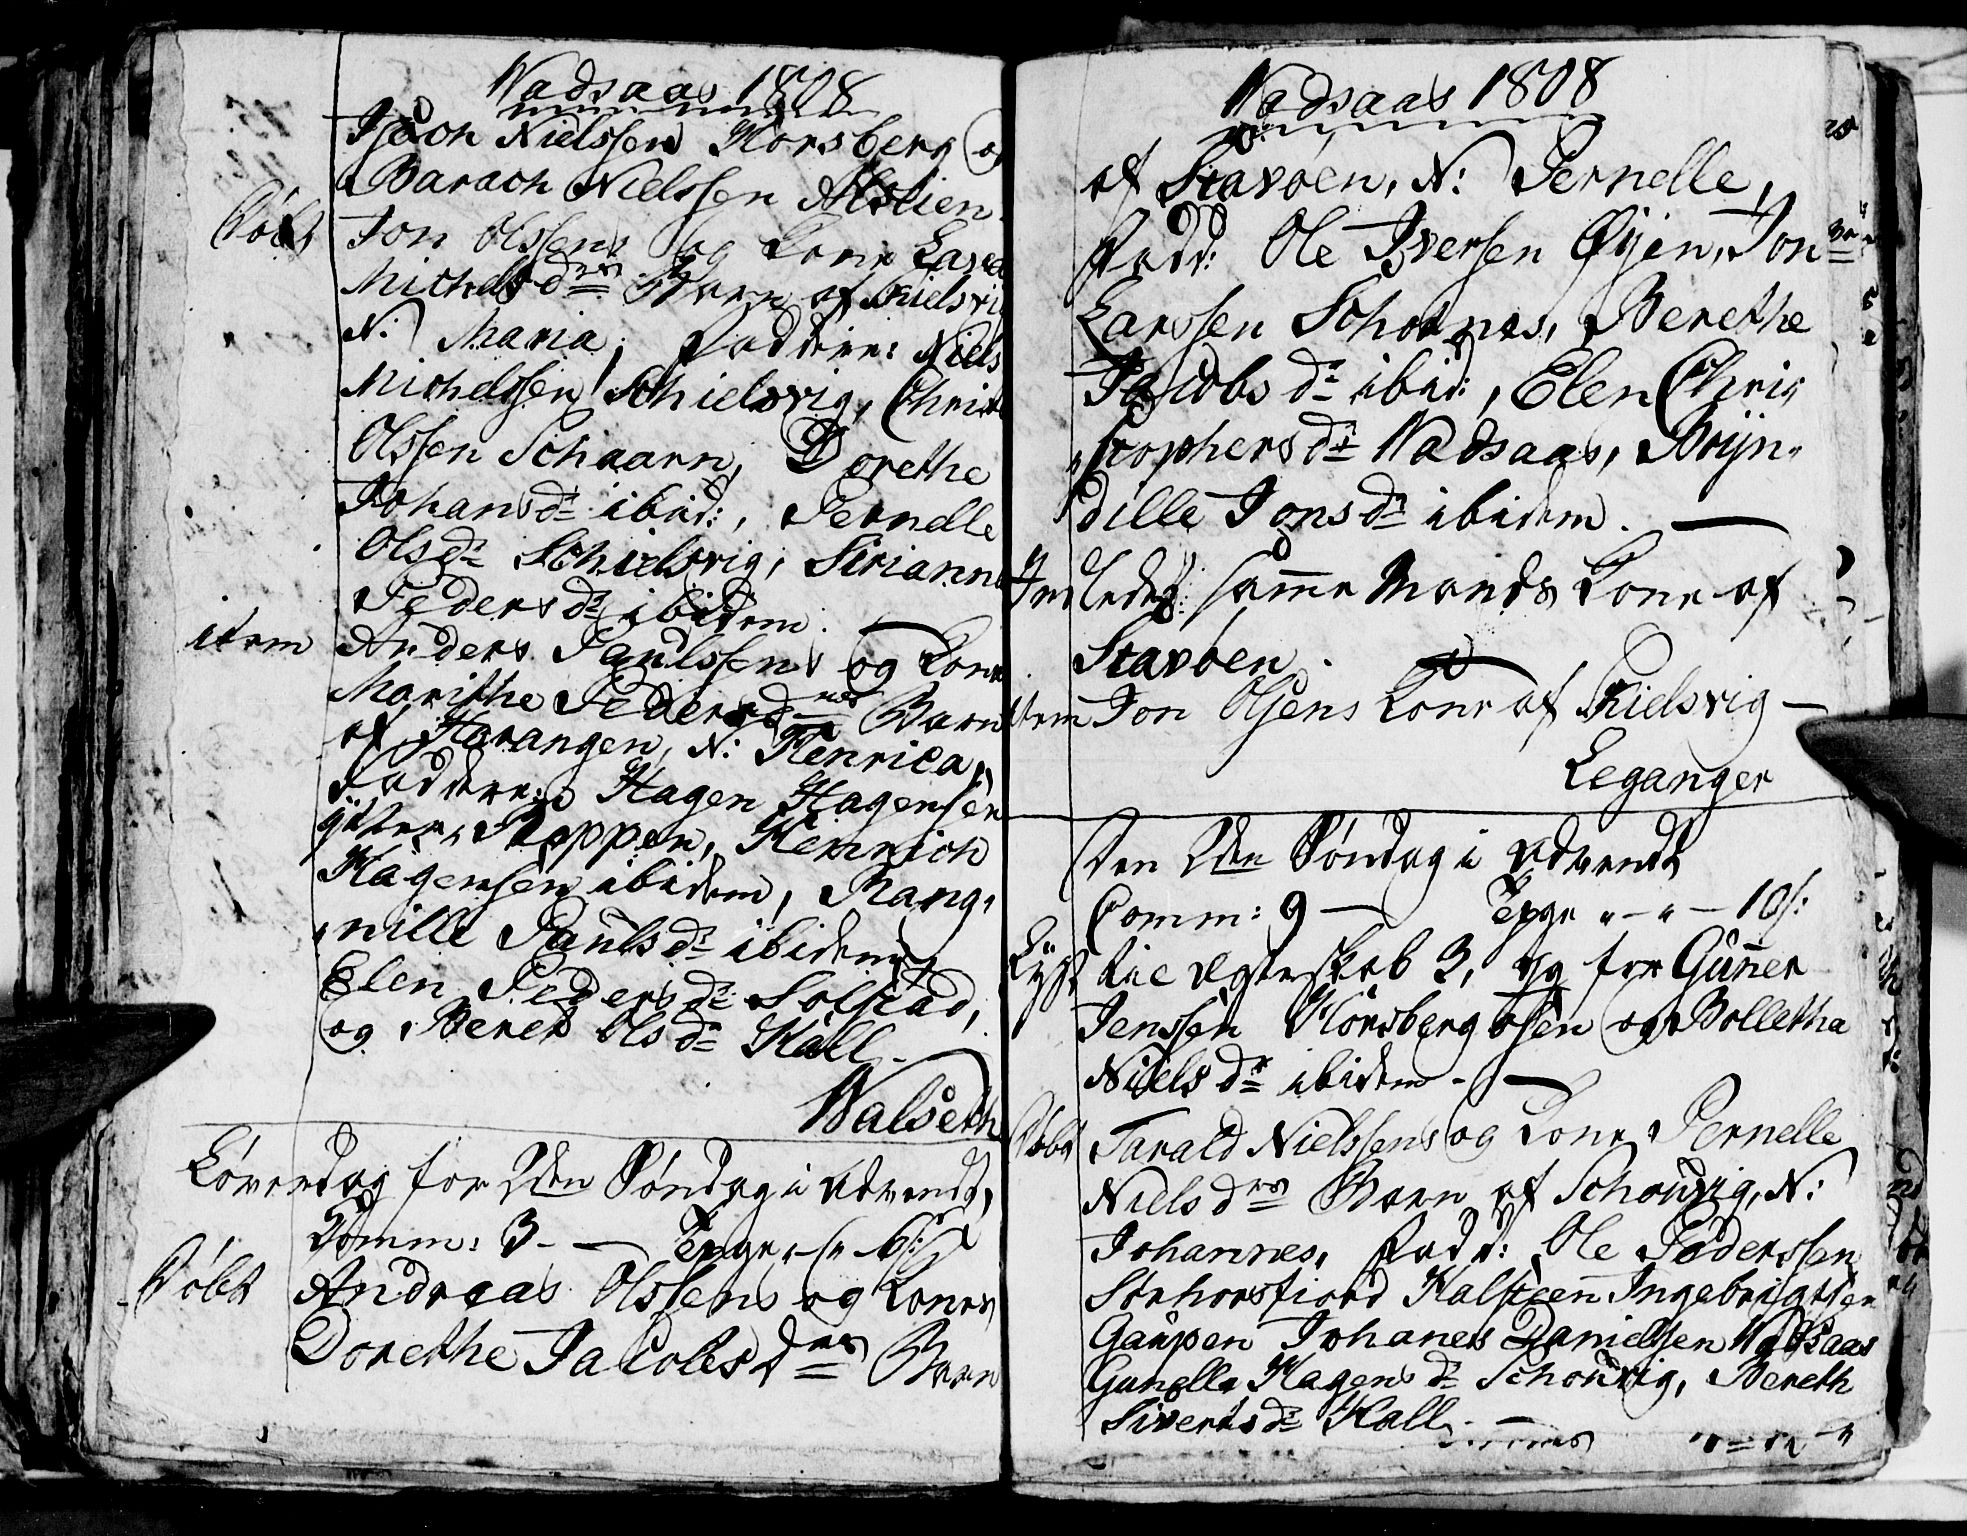 Wadsaas 1808
Isach Nielssen Horsberg og
Barach Nielssen Alstien
Døbt Jon Olssens og Kone
Michelsdrs Barn af Kielsvig
N: Maria, Faddere: Niels
Michelssen Schielsvig, Christ
Olssen Schaarn, Dorethe
Johansdr ibid:, Pernelle
Olsdr Schielsvig, Siriann
Pedersdr ibidem.
item Anders Paulssens og Kone
Marithe Pedersdrs Barn
af Harangen, N: Henrica,
Faddere: Hagen Hagensen
Roppen, Heinrich
Hagensen ibidem, Rang,
,nille Paulsdr ibidem,
Elen Pedersdr Solstad,
og Beret Olsdr Hall.
Walseth
Løverdag for 2den Søndag i Advendt,
Comm: 3 - Tepge 6s:
Døbt Andreas Olssens og Kones
Dorethe Jacobsdrs Barn
Wadsaas 1808
af Stavøen, N: Pernelle,
Fadd: Ole Iversen Øyen, Jon
Larssen Schotnes, Berethe
Jacobsdr ibid:, Elen Chri,
,stophersdr Wadsaas, Bryn,
dille Jonsdr ibidem.
Indledet samme Mands Kone af
Stavøen.
item Jon Olsens Kone af Kielsvig
Leganger
Den 2den Søndag i Advendt
Comm: 9 — Tepge - 10s:
Lyst til Ægteskab 3, og for Gunner
Jenssen Horsbergøsen og Bolletha
Nielsdr ibidem.
Døbt Tarald Nielssens og Kone Pernelle
Nielsdrs Barn af Schoüvig, N:
Johannes, Fadd: Ole Pederssen
Storhorsfiord Halsteen Ingebrigtsen
Gaupen Johanes Danielssen Wadsaas
Gunella Hagensdr Schoüvig, Bereth
Sivertsdr Hall.